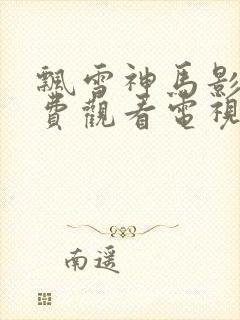 飄雪神馬影
費觀看電視
南遥